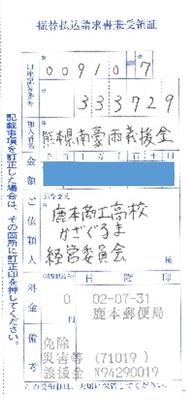 振替払込請求書兼受領証
00910 7
333729
加入者名
熊本県南豪雨義援金
金額
おなまえ
ご依頼人
鹿本商工高校
かざぐるま
経営委員会
料金
0
日附印
02-07-31
鹿本郵便局
備考
免除
災害等 (71019)
義援金 N94290019
この受領証は、大切に保管してください。
記載事項を訂正した場合は、その箇所に訂正印を押してください。